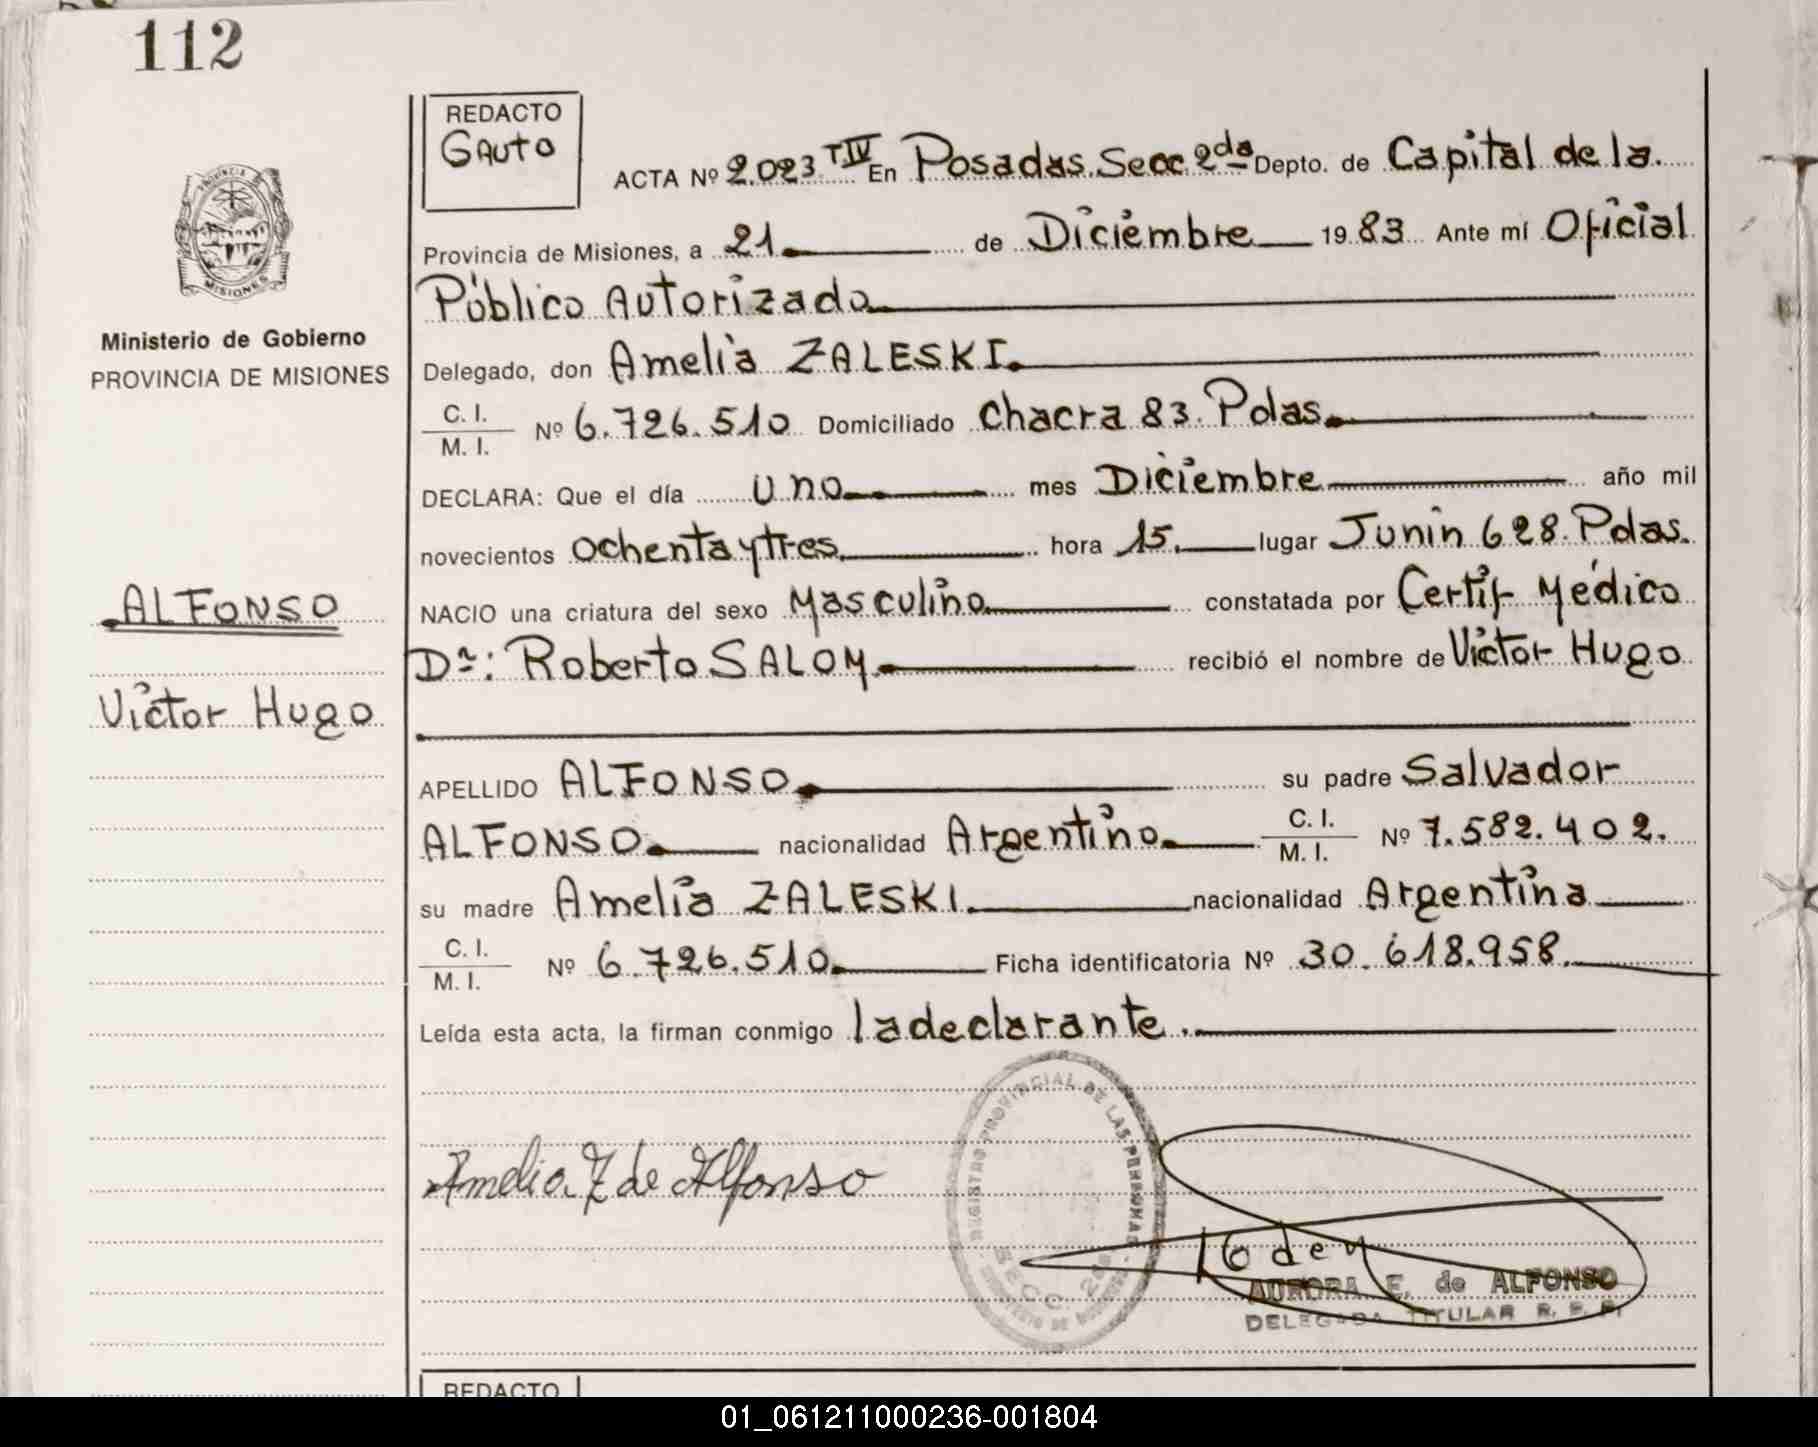 112
REDACTO
Gauto
ACTA Nº 2.023 TIV En Posadas. Secc. 2da Depto. de Capital de la
Provincia de Misiones, a 21 de Diciembre 1983 Ante mí Oficial
Público Autorizado
Ministerio de Gobierno
PROVINCIA DE MISIONES
Delegado, don Amelia ZALESKI.
C. I.
M. I. Nº 6.726.510 Domiciliado Chacra 83. Pdas.
DECLARA: Que el día uno mes Diciembre año mil
novecientos ochenta y tres hora 15. lugar Junin 628. Pdas.
ALFONSO
NACIO una criatura del sexo Masculino constatada por Certif. Médico
Dr: Roberto SALOM recibió el nombre de Victor Hugo
Victor Hugo
APELLIDO ALFONSO su padre Salvador
ALFONSO nacionalidad Argentino C. I.
M. I. Nº 7.582.402.
su madre Amelia ZALESKI. nacionalidad Argentina
C. I.
M. I. Nº 6.726.510 Ficha identificatoria Nº 30.618.958.
Leída esta acta, la firman conmigo la declarante.
Amelia Z de Alfonso
REGISTRO PROVINCIAL DE LAS PERSONAS
SECC. 2da
AURORA E. de ALFONSO
DELEGADA TITULAR R. P. P.
REDACTO
01_061211000236-001804